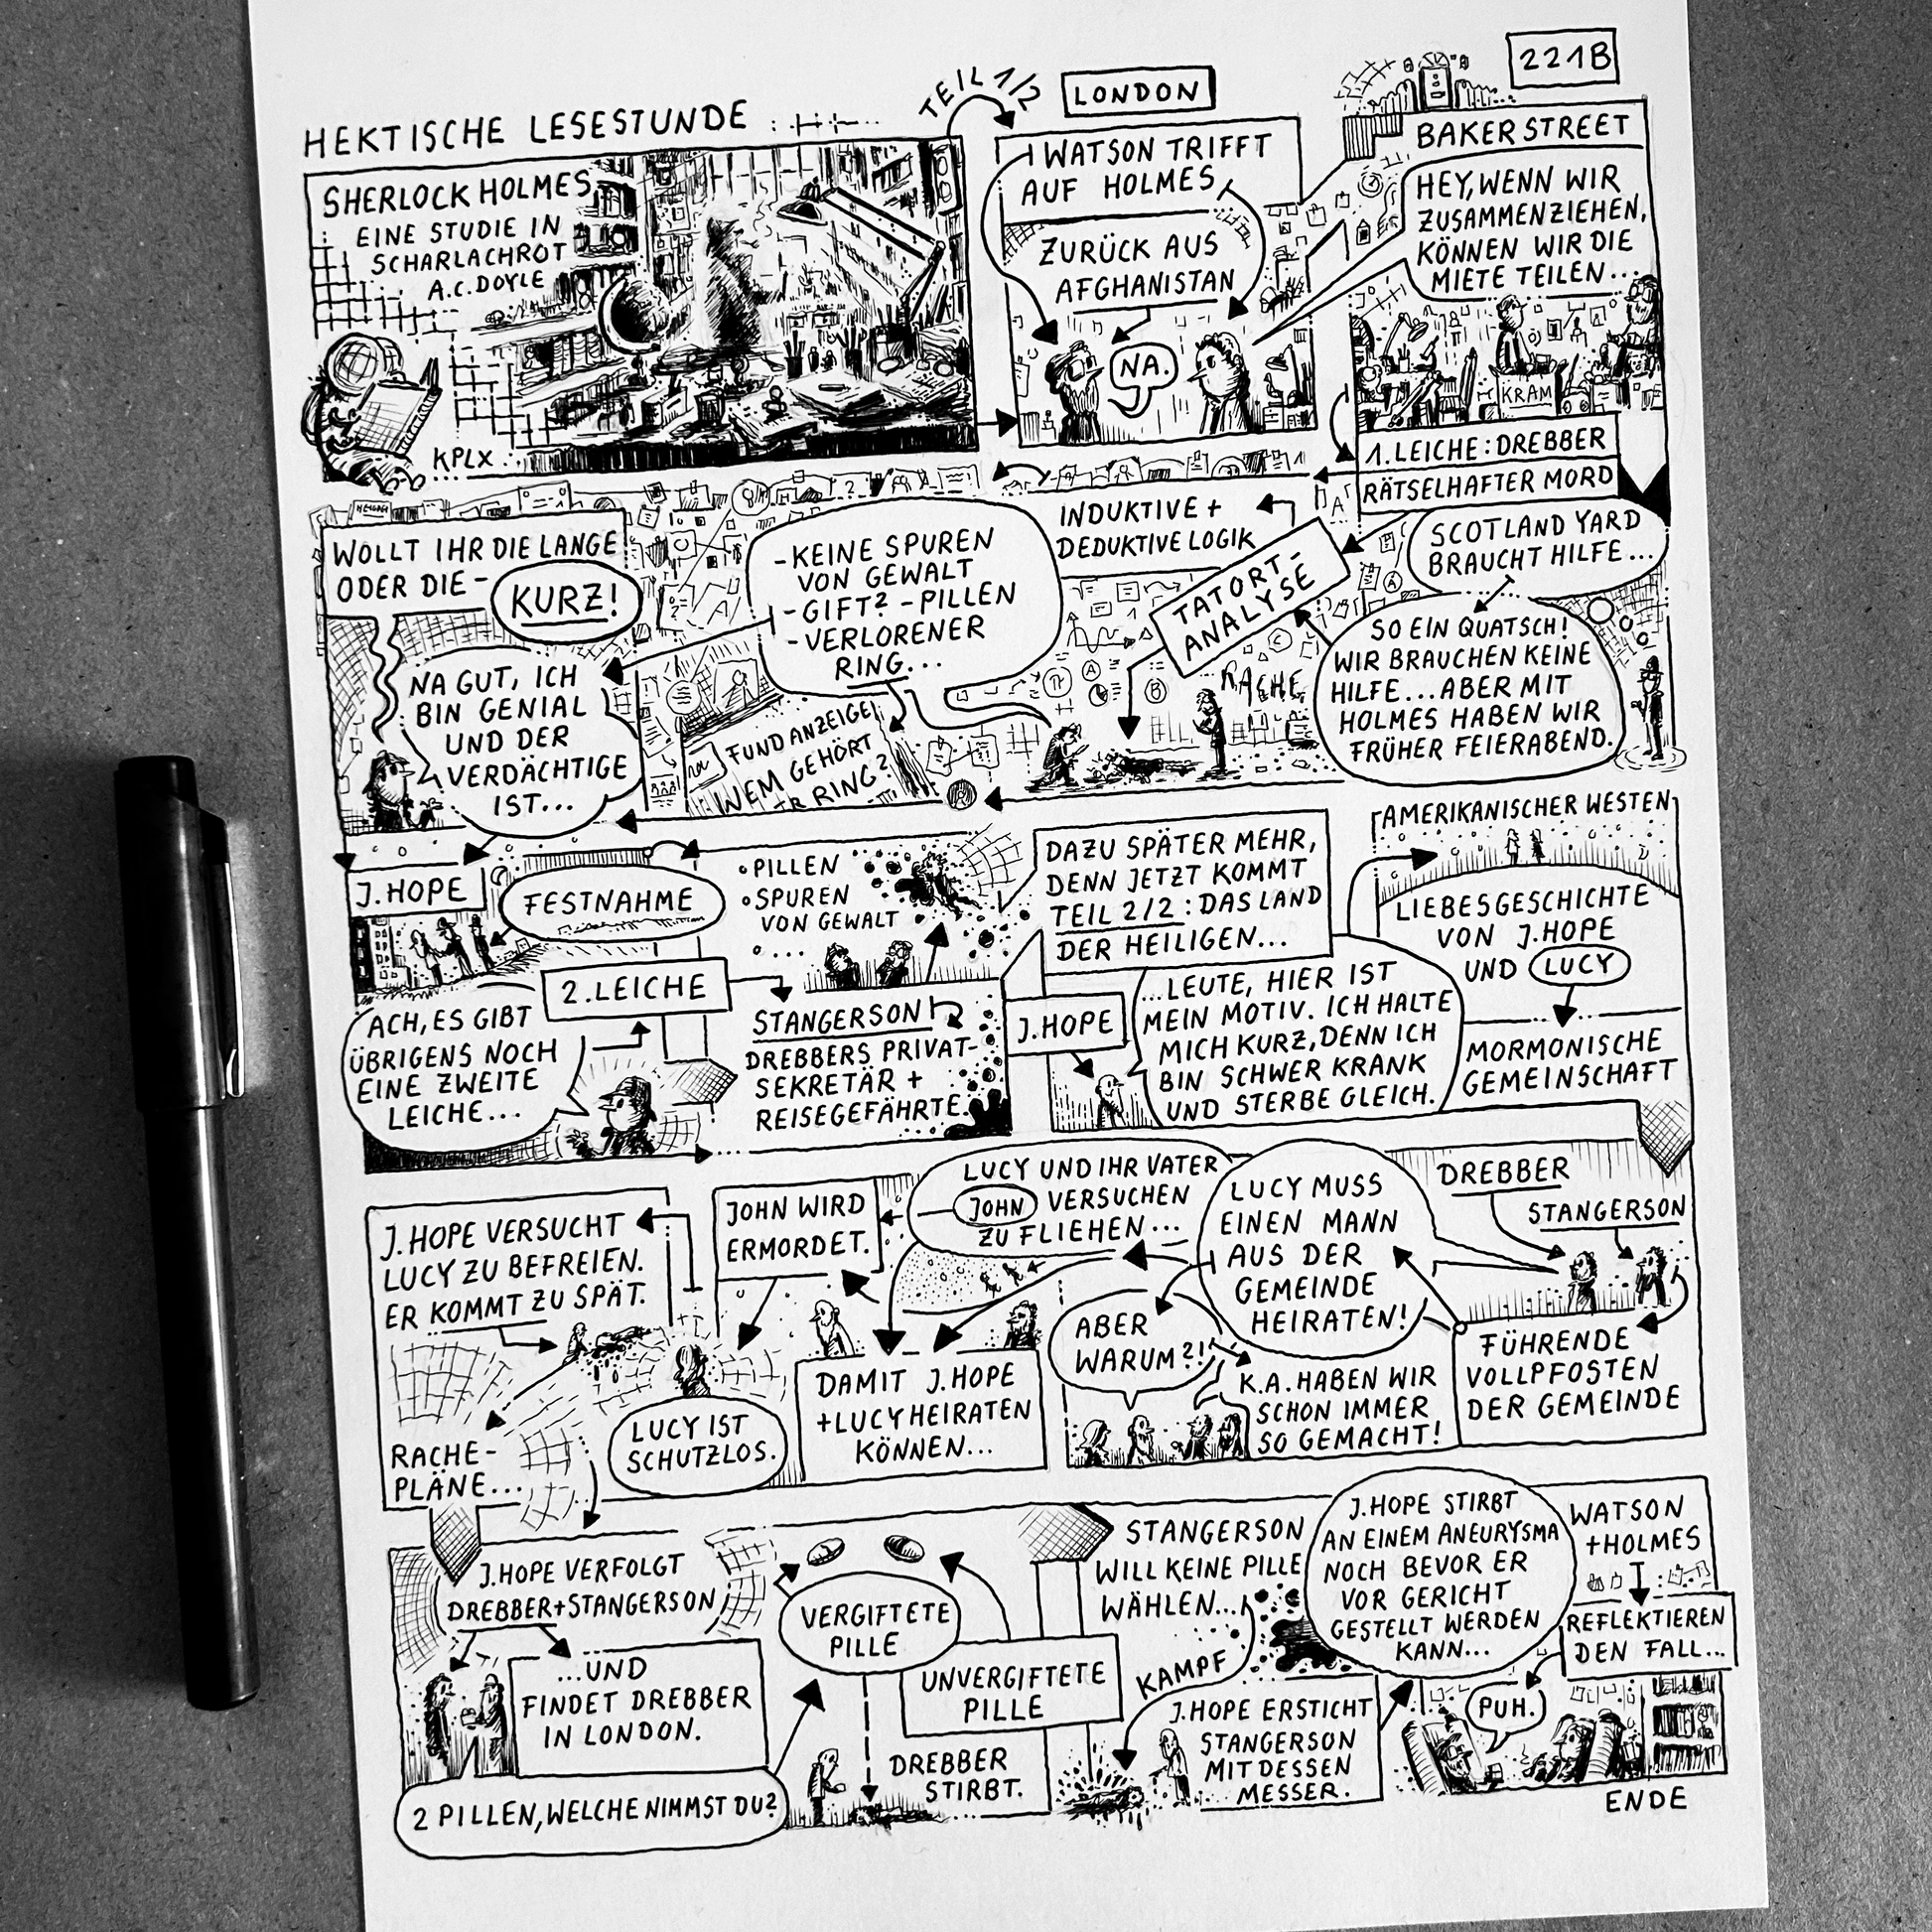 HEKTISCHE LESESTUNDE
SHERLOCK HOLMES
EINE STUDIE IN
SCHARLACHROT
A.C.DOYLE
KPLX
TEIL 1/2
LONDON
WATSON TRIFFT
AUF HOLMES
ZURÜCK AUS
AFGHANISTAN
NA.
221B
BAKER STREET
HEY, WENN WIR
ZUSAMMENZIEHEN,
KÖNNEN WIR DIE
MIETE TEILEN...
KRAM
1. LEICHE: DREBBER
RÄTSELHAFTER MORD
SCOTLAND YARD
BRAUCHT HILFE...
SO EIN QUATSCH!
WIR BRAUCHEN KEINE
HILFE...ABER MIT
HOLMES HABEN WIR
FRÜHER FEIERABEND.
TATORT-
ANALYSE
RACHE
INDUKTIVE +
DEDUKTIVE LOGIK
-KEINE SPUREN
VON GEWALT
-GIFT? -PILLEN
-VERLORENER
RING...
FUNDANZEIGE
WEM GEHÖRT
RING?
WOLLT IHR DIE LANGE
ODER DIE-
KURZ!
NA GUT, ICH
BIN GENIAL
UND DER
VERDÄCHTIGE
IST...
J. HOPE
FESTNAHME
ACH, ES GIBT
ÜBRIGENS NOCH
EINE ZWEITE
LEICHE...
2. LEICHE
• PILLEN
• SPUREN
VON GEWALT
• ...
STANGERSON
DREBBERS PRIVAT-
SEKRETÄR +
REISEGEFÄHRTE.
DAZU SPÄTER MEHR,
DENN JETZT KOMMT
TEIL 2/2: DAS LAND
DER HEILIGEN...
J. HOPE
...LEUTE, HIER IST
MEIN MOTIV. ICH HALTE
MICH KURZ, DENN ICH
BIN SCHWER KRANK
UND STERBE GLEICH.
AMERIKANISCHER WESTEN
LIEBESGESCHICHTE
VON J. HOPE
UND LUCY
MORMONISCHE
GEMEINSCHAFT
DREBBER
STANGERSON
FÜHRENDE
VOLLPFOSTEN
DER GEMEINDE
LUCY MUSS
EINEN MANN
AUS DER
GEMEINDE
HEIRATEN!
ABER
WARUM?!
K.A. HABEN WIR
SCHON IMMER
SO GEMACHT!
LUCY UND IHR VATER
JOHN VERSUCHEN
ZU FLIEHEN...
DAMIT J. HOPE
+ LUCY HEIRATEN
KÖNNEN...
JOHN WIRD
ERMORDET.
LUCY IST
SCHUTZLOS.
J. HOPE VERSUCHT
LUCY ZU BEFREIEN.
ER KOMMT ZU SPÄT.
RACHE-
PLÄNE...
J. HOPE VERFOLGT
DREBBER+STANGERSON
...UND
FINDET DREBBER
IN LONDON.
2 PILLEN, WELCHE NIMMST DU?
VERGIFTETE
PILLE
UNVERGIFTETE
PILLE
DREBBER
STIRBT.
STANGERSON
WILL KEINE PILLE
WÄHLEN...
KAMPF
J. HOPE ERSTICHT
STANGERSON
MIT DESSEN
MESSER.
J. HOPE STIRBT
AN EINEM ANEURYSMA
NOCH BEVOR ER
VOR GERICHT
GESTELLT WERDEN
KANN...
WATSON
+HOLMES
REFLEKTIEREN
DEN FALL...
PUH.
ENDE